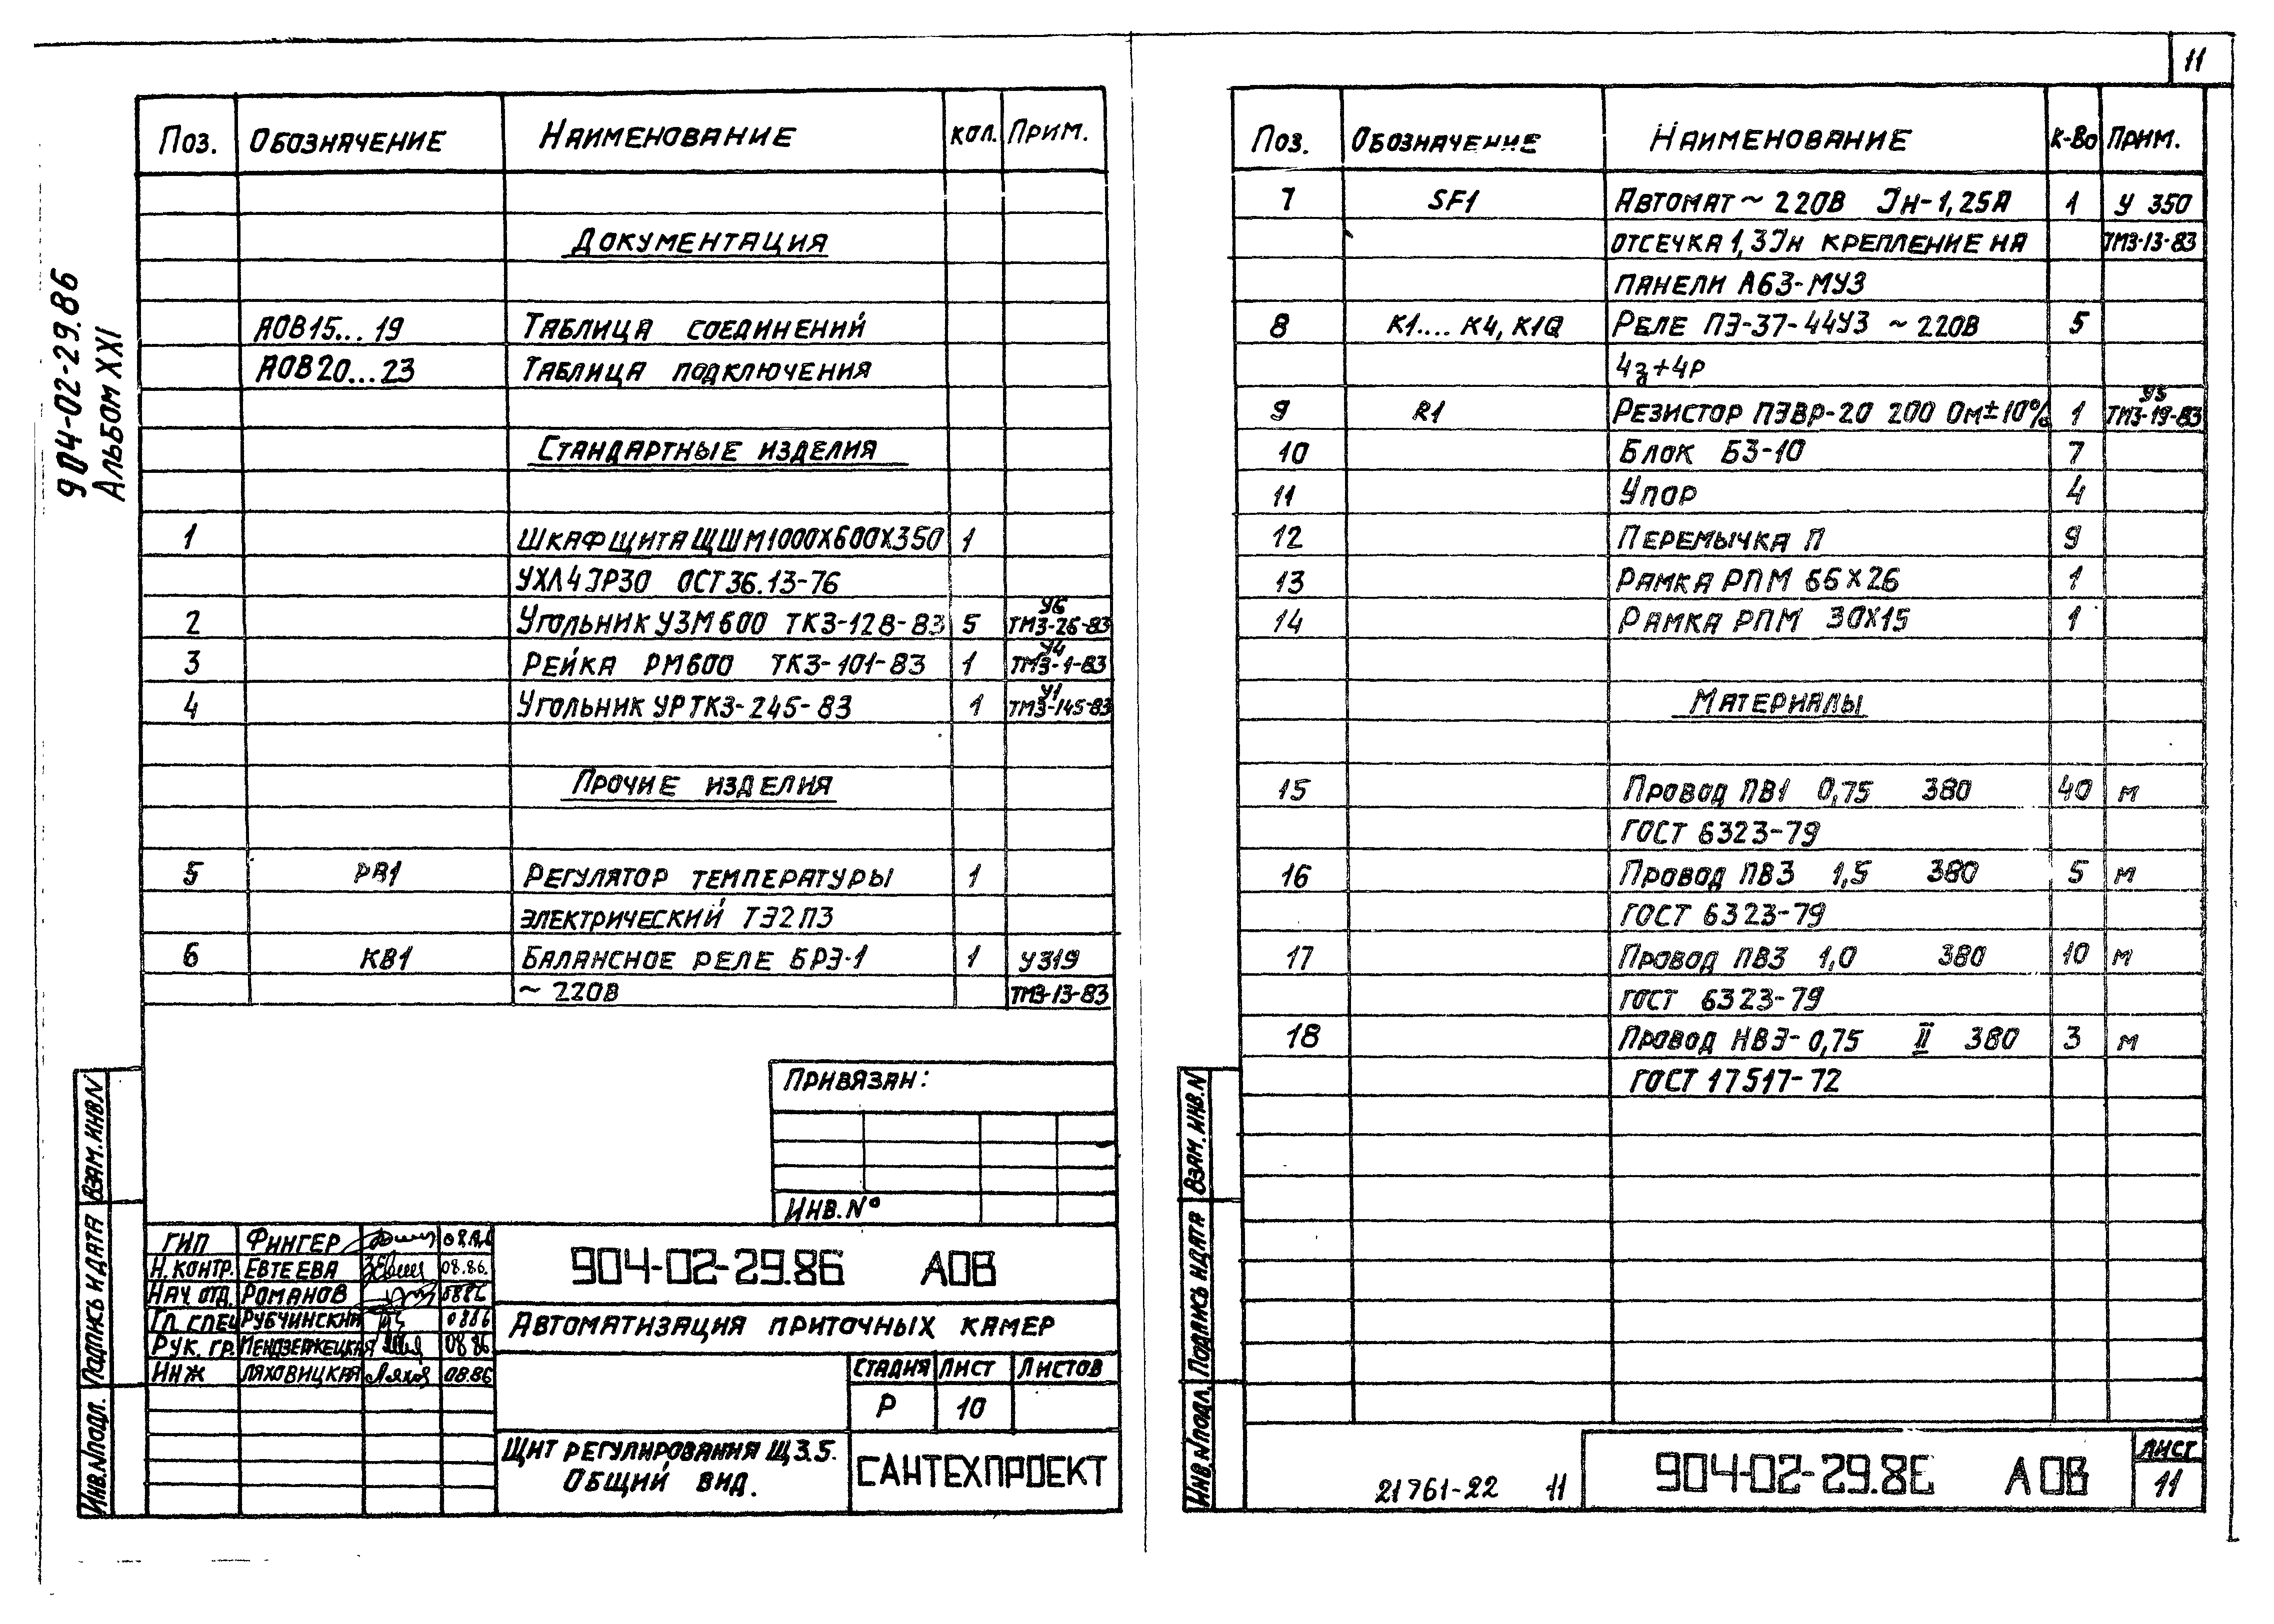 11
904-02-29.86
Альбом XXI
Поз. Обозначение Наименование кол. Прим.
Документация
АОВ15...19 Таблица соединений
АОВ20...23 Таблица подключения
Стандартные изделия
1 Шкаф щита ЩШМ1000Х600Х350 1
УХЛ4 JP30 ОСТ36.13-76
2 Угольник УЗМ600 ТК3-128-83 5 У6 ТМ3-26-83
3 Рейка РМ600 ТК3-101-83 1 У4 ТМ3-1-83
4 Угольник УР ТК3-245-83 1 У1 ТМ3-145-83
Прочие изделия
5 РВ1 Регулятор температуры 1
электрический ТЭ2П3
6 КВ1 Балансное реле БРЭ-1 1 У319
~ 220В ТМ3-13-83
Привязан:
Инв.№
ГИП Фингер 08.86
Н.контр. Евтеева 08.86.
Нач. отд. Романов 0886
Гл. спец Рубчинский 0886
Рук. гр. Мендзержецкая 08 86
Инж Ляховицкая 08.86
904-02-29.86 АОВ
Автоматизация приточных камер
Стадия Лист Листов
Р 10
Щит регулирования Щ3.5.
Общий вид.
САНТЕХПРОЕКТ
Взам. инв.N
Подпись и дата
Инв.Nподл.
Поз. Обозначение Наименование К-во Прим.
7 SF1 Автомат ~ 220В Jн-1,25А 1 У 350
отсечка 1,3Jн крепление на ТМ3-13-83
панели А63-МУ3
8 К1.... К4, К1Q Реле ПЭ-37-44У3 ~ 220В 5
4з+4р
9 R1 Резистор ПЭВР-20 200 Ом±10% 1 У5 ТМ3-19-83
10 Блок Б3-10 7
11 Упор 4
12 Перемычка П 9
13 Рамка РПМ 66х26 1
14 Рамка РПМ 30х15 1
Материалы
15 Провод ПВ1 0,75 380 40 м
ГОСТ 6323-79
16 Провод ПВ3 1,5 380 5 м
ГОСТ 6323-79
17 Провод ПВ3 1,0 380 10 м
ГОСТ 6323-79
18 Провод НВЭ-0,75 II 380 3 м
ГОСТ 17517-72
Взам. инв.N
Подпись и дата
Инв.Nподл.
21761-22 11
904-02-29.86 АОВ
Лист
11